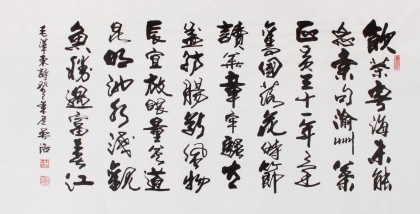 飲茶粵海未能
忘索句渝州葉
正黃三十一年還
舊國落花時節
讀華章牢騷太
盛防腸斷風物
長宜放眼量莫道
昆明池水淺觀
魚勝過富春江
毛澤東詩